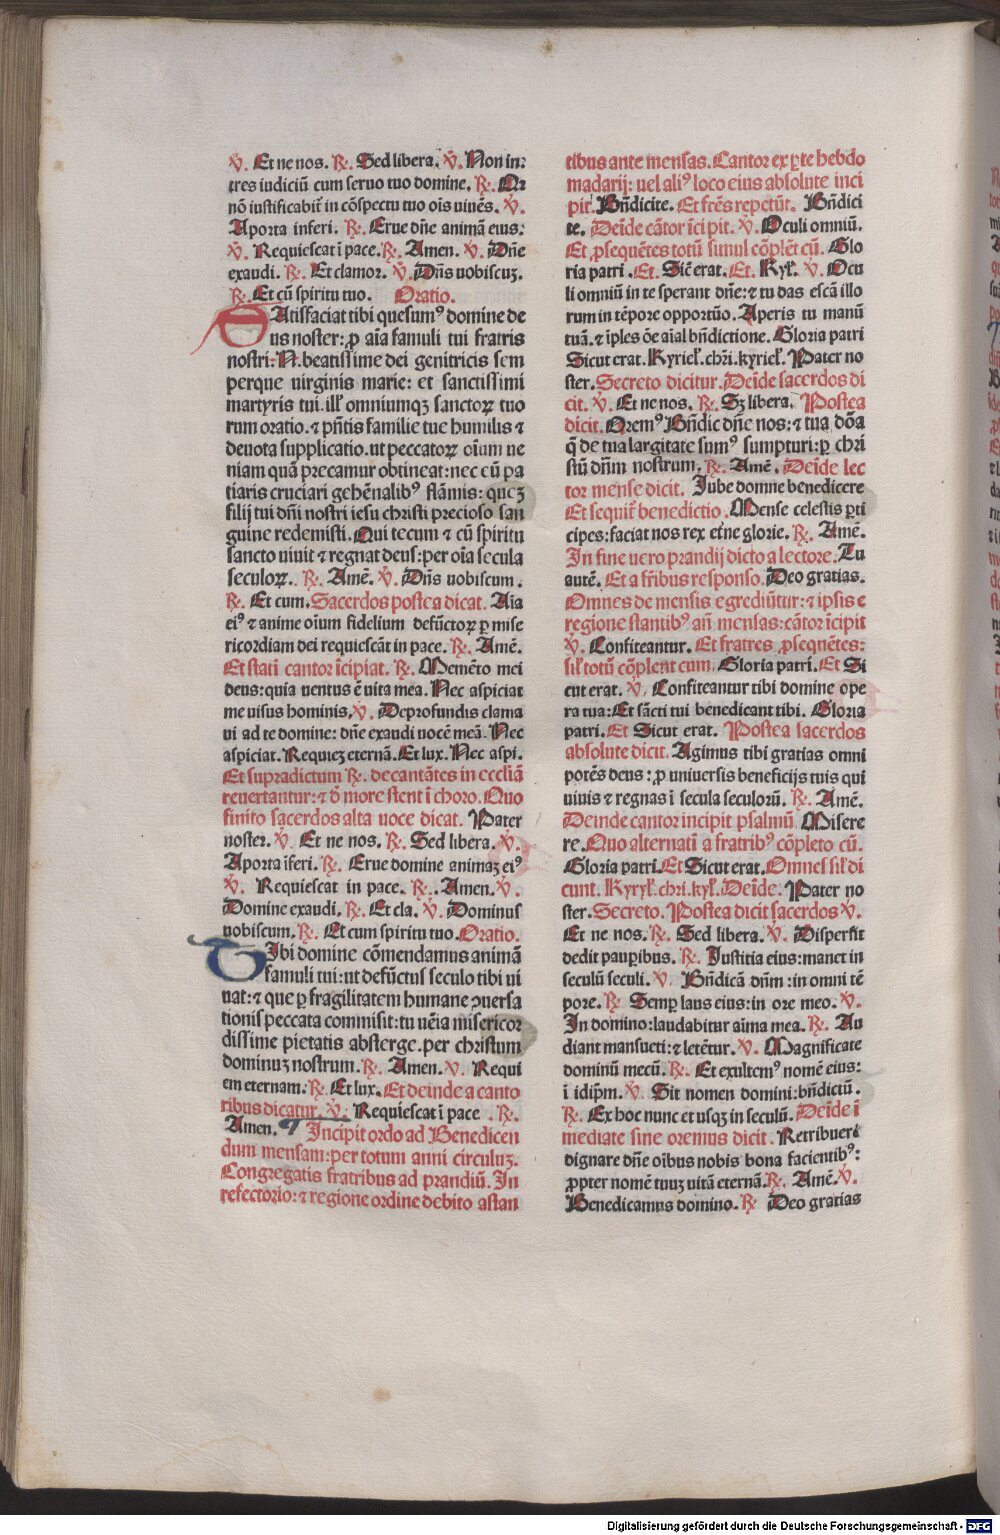 ℣. Et ne nos. ℟. Sed libera. ℣. Non in⸗
tres iudiciū cum seruo tuo domine. ℟. Qꝛ
nō iustificabit̄ in cōspectu tuo oīs uiuēs. ℣.
Aporta inferi. ℟. Erue dn̄e animā eius:
℣. Requiescat ī pace. ℟. Amen. ℣. Dn̄e
exaudi. ℟. Et clamoꝛ. ℣. Dn̄s uobiscuꝫ.
℟. Et cū spiritu tuo. Oratio.
SAtisfaciat tibi quesumꝰ domine de
us noster: ꝓ aīa famuli tui fratris
nostri: N. beatissime dei genitricis sem
perque uirginis marie: et sanctissimi
martyris tui. ill̕ omniumqꝫ sanctoꝝ tuo
rum oratio. ⁊ pn̄tis familie tue humilis ⁊
deuota supplicatio. ut peccatoꝝ oīum ue
niam quā precamur obtineat: nec cū pa
tiaris cruciari gehēnalibꝰ flāmis: queꝫ
filij tui dn̄i nostri iesu christi precioso san
guine redemisti. Qui tecum ⁊ cū spiritu
sancto uiuit ⁊ regnat deus: per oīa secula
seculoꝝ. ℟. Amē. ℣. Dn̄s uobiscum.
℟. Et cum. Sacerdos postea dicat. Aīa
eiꝰ ⁊ anime oīum fidelium defūctoꝝ ꝑ mise
ricordiam dei requiescāt in pace. ℟. Amē.
Et statī cantor īcipiat. ℟. Memēto mei
deus: quia uentus ē uita mea. Nec aspiciat
me uisus hominis. ℣. De profundis clama
ui ad te domine: dn̄e exaudi uocē meā. Nec
aspiciat. Requieꝫ eternā. Et lux. Nec aspi.
Et supradictum ℟. decantātes in eccliā
reuertantur: ⁊ ꝺ̄ more stent ī choro. Quo
finito sacerdos alta uoce dicat. Pater
noster. ℣. Et ne nos. ℟. Sed libera. ℣.
Aporta īferi. ℟. Erue domine animaꝫ eiꝰ
℣. Requiescat in pace. ℟. Amen. ℣.
Domine exaudi. ℟. Et cla. ℣. Dominus
uobiscum. ℟. Et cum spiritu tuo. Oratio.
TIbi domine cōmendamus animā
famuli tui: ut defūctus seculo tibi ui
uat: ⁊ que ꝑ fragilitatem humane ꝯuersa
tionis peccata commisit: tu uēia misericoꝛ
dissime pietatis absterge. per christum
dominuꝫ nostrum. ℟. Amen. ℣. Requi
em eternam: ℟. Et lux. Et deinde a canto
ribus dicatur. ℣. Requiescat ī pace. ℟.
Amen. ¶ Incipit ordo ad Benedicen
dum mensam: per totum anni circuluꝫ.
Congregatis fratribus ad prandiū. In
refectorio: ⁊ regione ordine debito astan
tibus ante mensas. Cantoꝛ ex ꝑte hebdo
madarij: uel aliꝰ loco eius absolute inci
pit. Bn̄dicite. Et fr̄es repetūt. Bn̄dici
te. Deīde cātor īcipit. ℣. Oculi omniū.
Et ꝓsequētes totū simul cōplēt cū. Glo
ria patri. Et. Sic̄ erat. Et. Kyr̕. ℣. Ocu
li omniū in te sperant dn̄e: ⁊ tu das escā illo
rum in tēpore oppoꝛtūo. Aperis tu manū
tuā. ⁊ īples ōe aīal bn̄dictione. Gloria patri
Sicut erat. Kyriel̕. chꝛi. kyriel̕. Pater no
ster. Secreto dicitur. Deīde sacerdos di
cit. ℣. Et ne nos. ℟. Sꝫ libera. Postea
dicit. Oremꝰ Bn̄dic dn̄e nos: ⁊ tua dōa
q̄ de tua largitate sumꝰ sumpturi: ꝑ chri
stū dn̄m nostrum. ℟. Amē. Deīde lec
tor mense dicit. Jube domne benedicere
Et sequit̄ benedictio. Mense celestis ꝑti
cipes: faciat nos rex etn̄e glorie. ℟. Amē.
In fine uero prandij dicto a lectore. Tu
autē. Et a fr̄ibus responso. Deo gratias.
Omnes de mensis egrediūtur: ⁊ ipsis e
regione stantibꝰ an̄ mensas: cātor īcipit
℣. Confiteantur. Et fratres ꝓsequētes:
sil̕ totū cōplent cum. Gloria patri. Et Si
cut erat. ℣. Confiteantur tibi domine ope
ra tua: Et sācti tui benedicant tibi. Gloria
patri. Et Sicut erat. Postea sacerdos
absolute dicit. Agimus tibi gratias omni
potēs deus: ꝓ uniuersis beneficijs tuis qui
uiuis ⁊ regnas ī secula seculorū. ℟. Amē.
Deinde cantor incipit psalmū. Misere
re. Quo alternatī a fratribꝰ cōpleto cū.
Gloria patri. Et Sicut erat. Omnes sil̕ di
cunt. Kyryl̕. chri. kyl̕. Deīde. Pater no
ster. Secreto. Postea dicit sacerdos ℣.
Et ne nos. ℟. Sed libera. ℣. Dispersit
dedit pauꝑibus. ℟. Justitia eius: manet in
seculū seculi. ℣. Bn̄dicā dn̄m: in omni tē
pore. ℟. Semꝑ laus eius: in ore meo. ℣.
In domino: laudabitur aīma mea. ℟. Au
diant mansueti: ⁊ letētur. ℣. Magnificate
dominū mecū. ℟. Et exultemꝰ nomē eius:
ī idip̄m. ℣. Sit nomen domini: bn̄dictū.
℟. Ex hoc nunc et usqꝫ in seculū. Deīde ī
mediate sine oremus dicit. Retribuere
dignare dn̄e oībus nobis bona facientibꝰ:
ꝓpter nomē tuuꝫ uitā eternā. ℟. Amē. ℣.
Benedicamus domino. ℟ Deo gratias
Digitalisierung gefördert durch die Deutsche Forschungsgemeinschaft - DFG